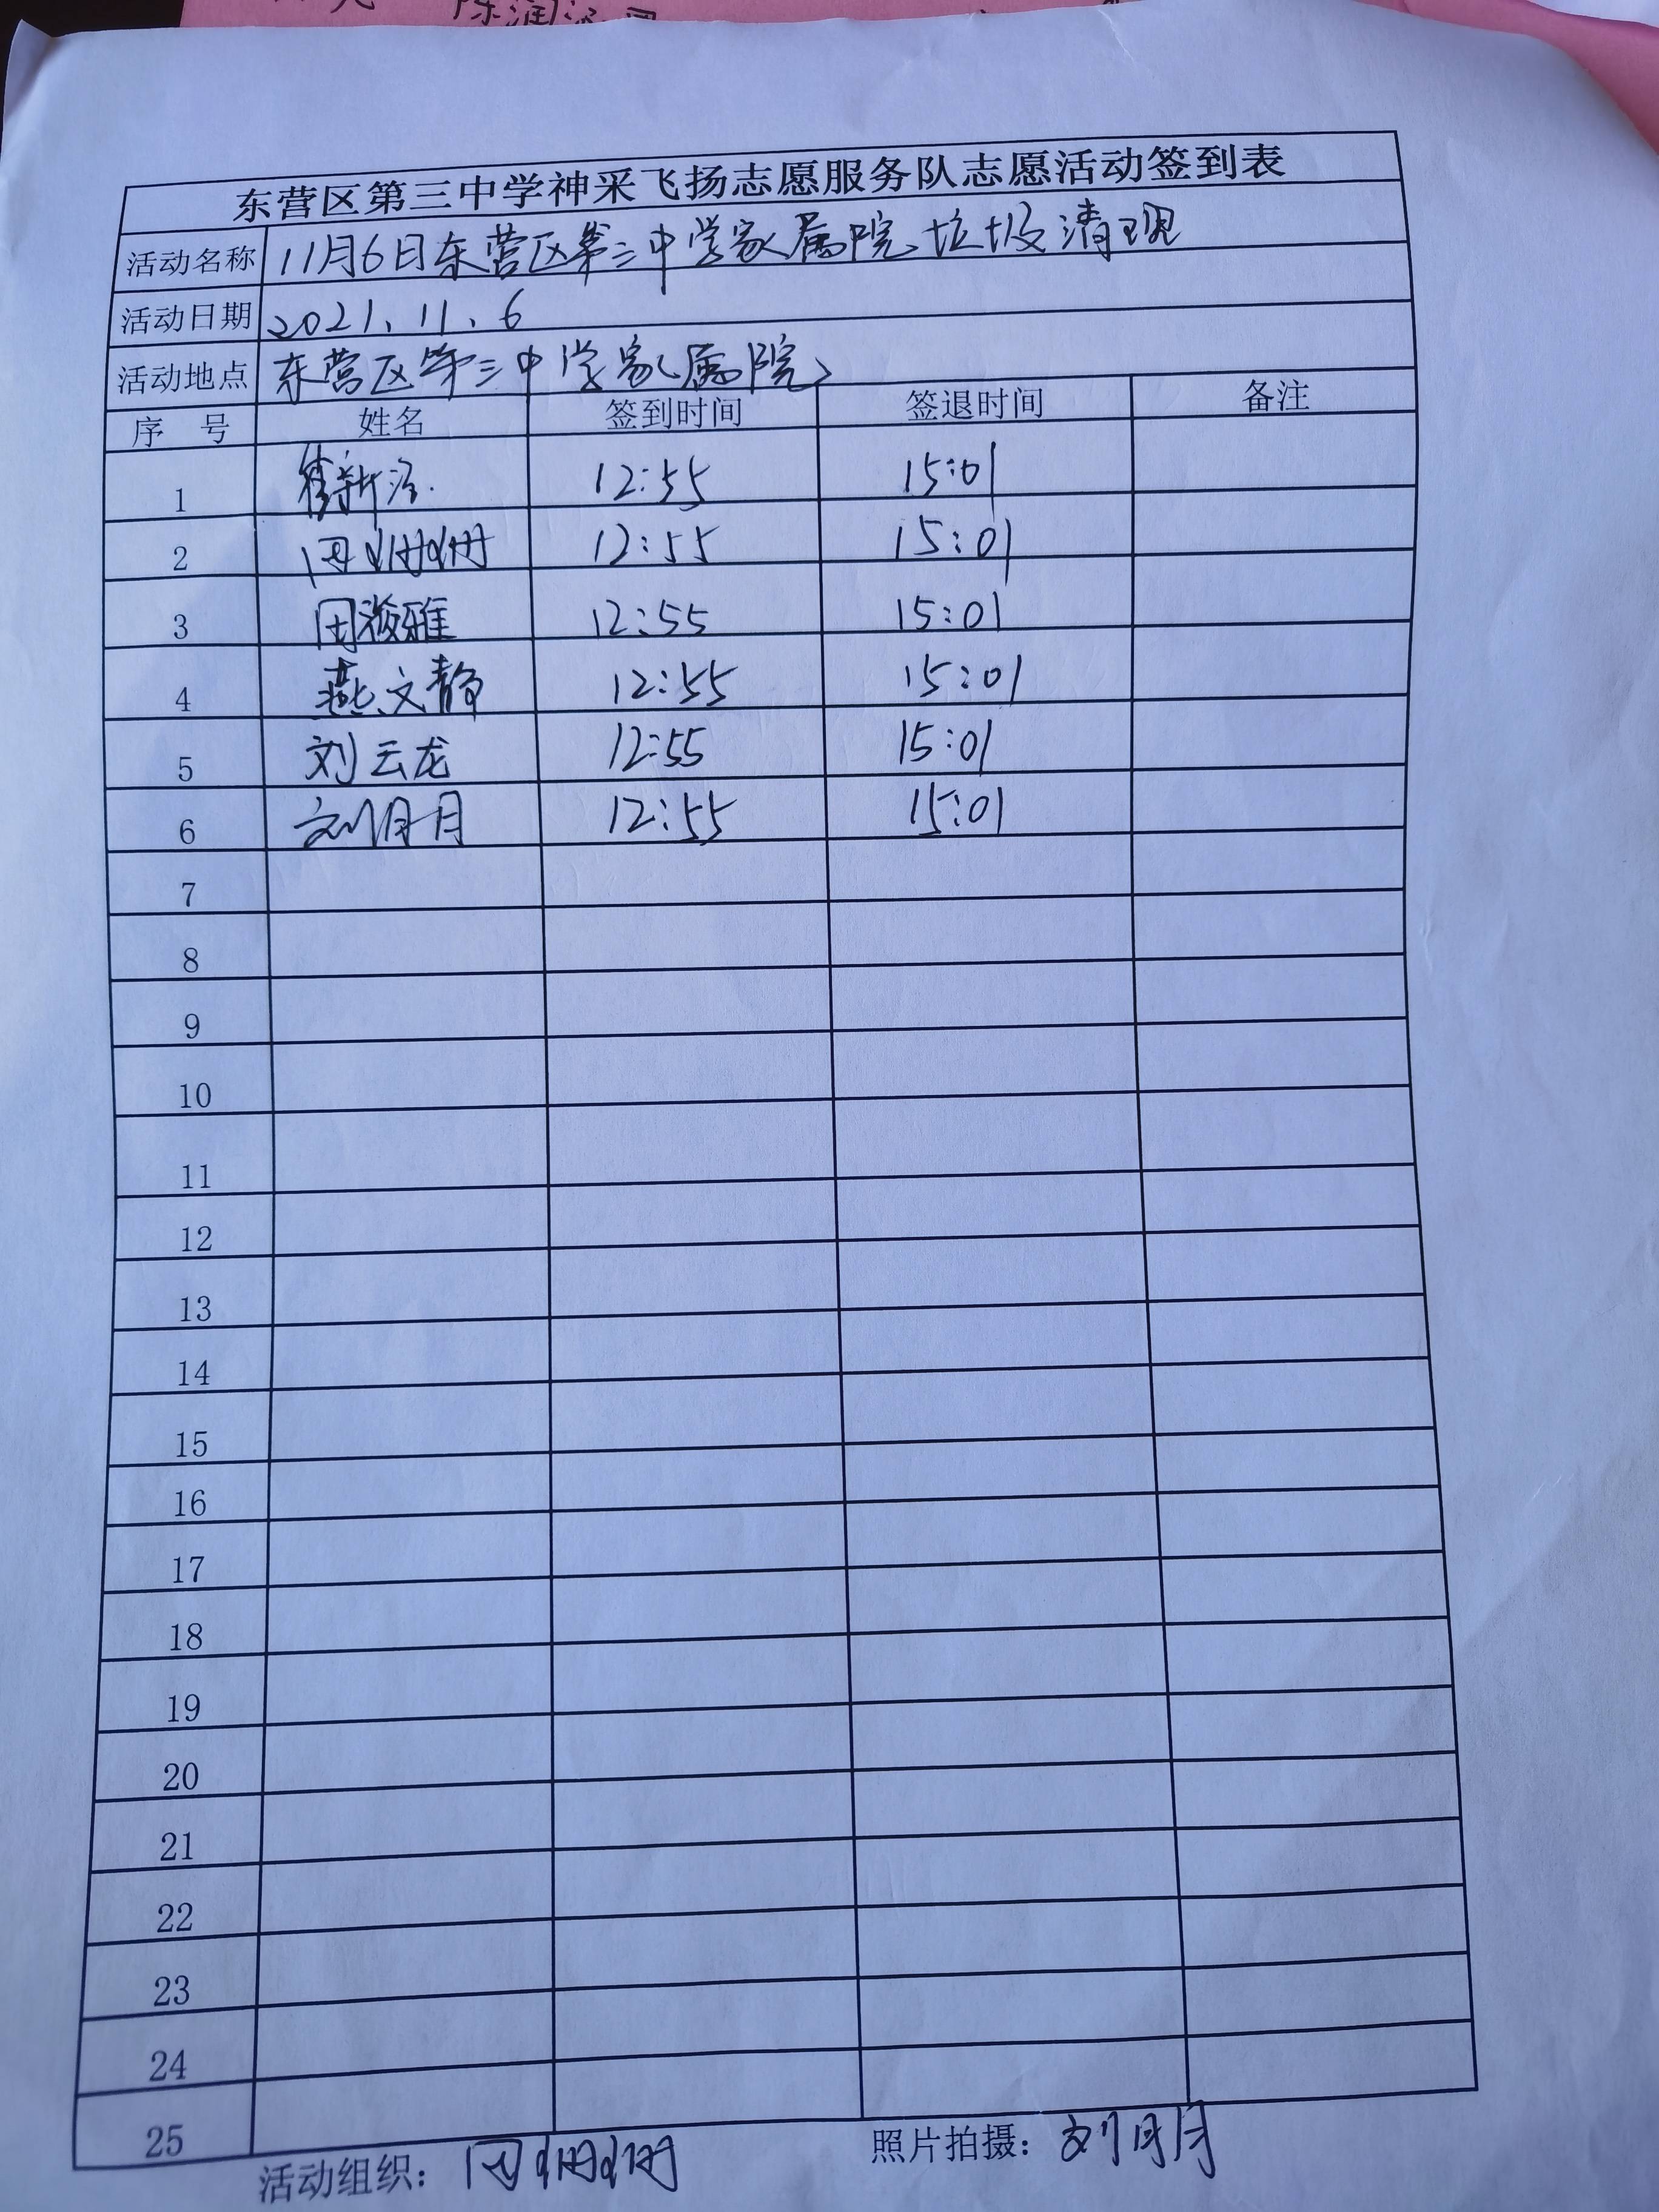 陈润
东营区第三中学神采飞扬志愿服务队志愿活动签到表
活动名称 11月6日东营区第三中学家属院垃圾清理
活动日期 2021.11.6
活动地点 东营区第三中学家属院
序 号 姓名 签到时间 签退时间 备注
1 12:55 15:01
2 田姗姗 12:55 15:01
3 田 雅 12:55 15:01
4 燕文静 12:55 15:01
5 刘云龙 12:55 15:01
6 刘月月 12:55 15:01
7
8
9
10
11
12
13
14
15
16
17
18
19
20
21
22
23
24
25
活动组织：田姗姗 照片拍摄：刘月月